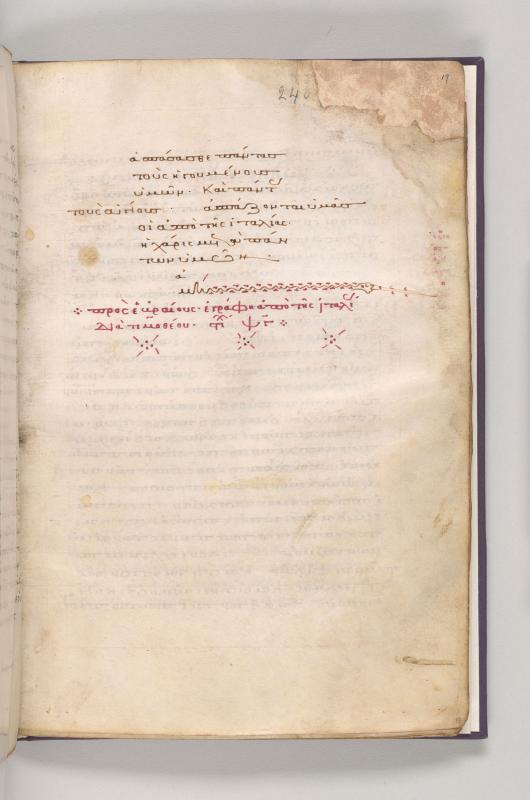 240
19
ἀσπάσασθε πάντας
τοὺς ἡγουμένους
ὑμῶν· Καὶ πάντ
τοὺς ἁγίους· ἀσπάζονται ὑμᾶς
οἱ ἀπὸ τῆς ἰταλίας·
ἡ χάρις μετὰ πάν
των ὑμῶν
πρὸς ἑβραίους· ἐγράφη ἀπὸ τῆς ἰταλί
Διὰ τιμοθέου· στι ψ